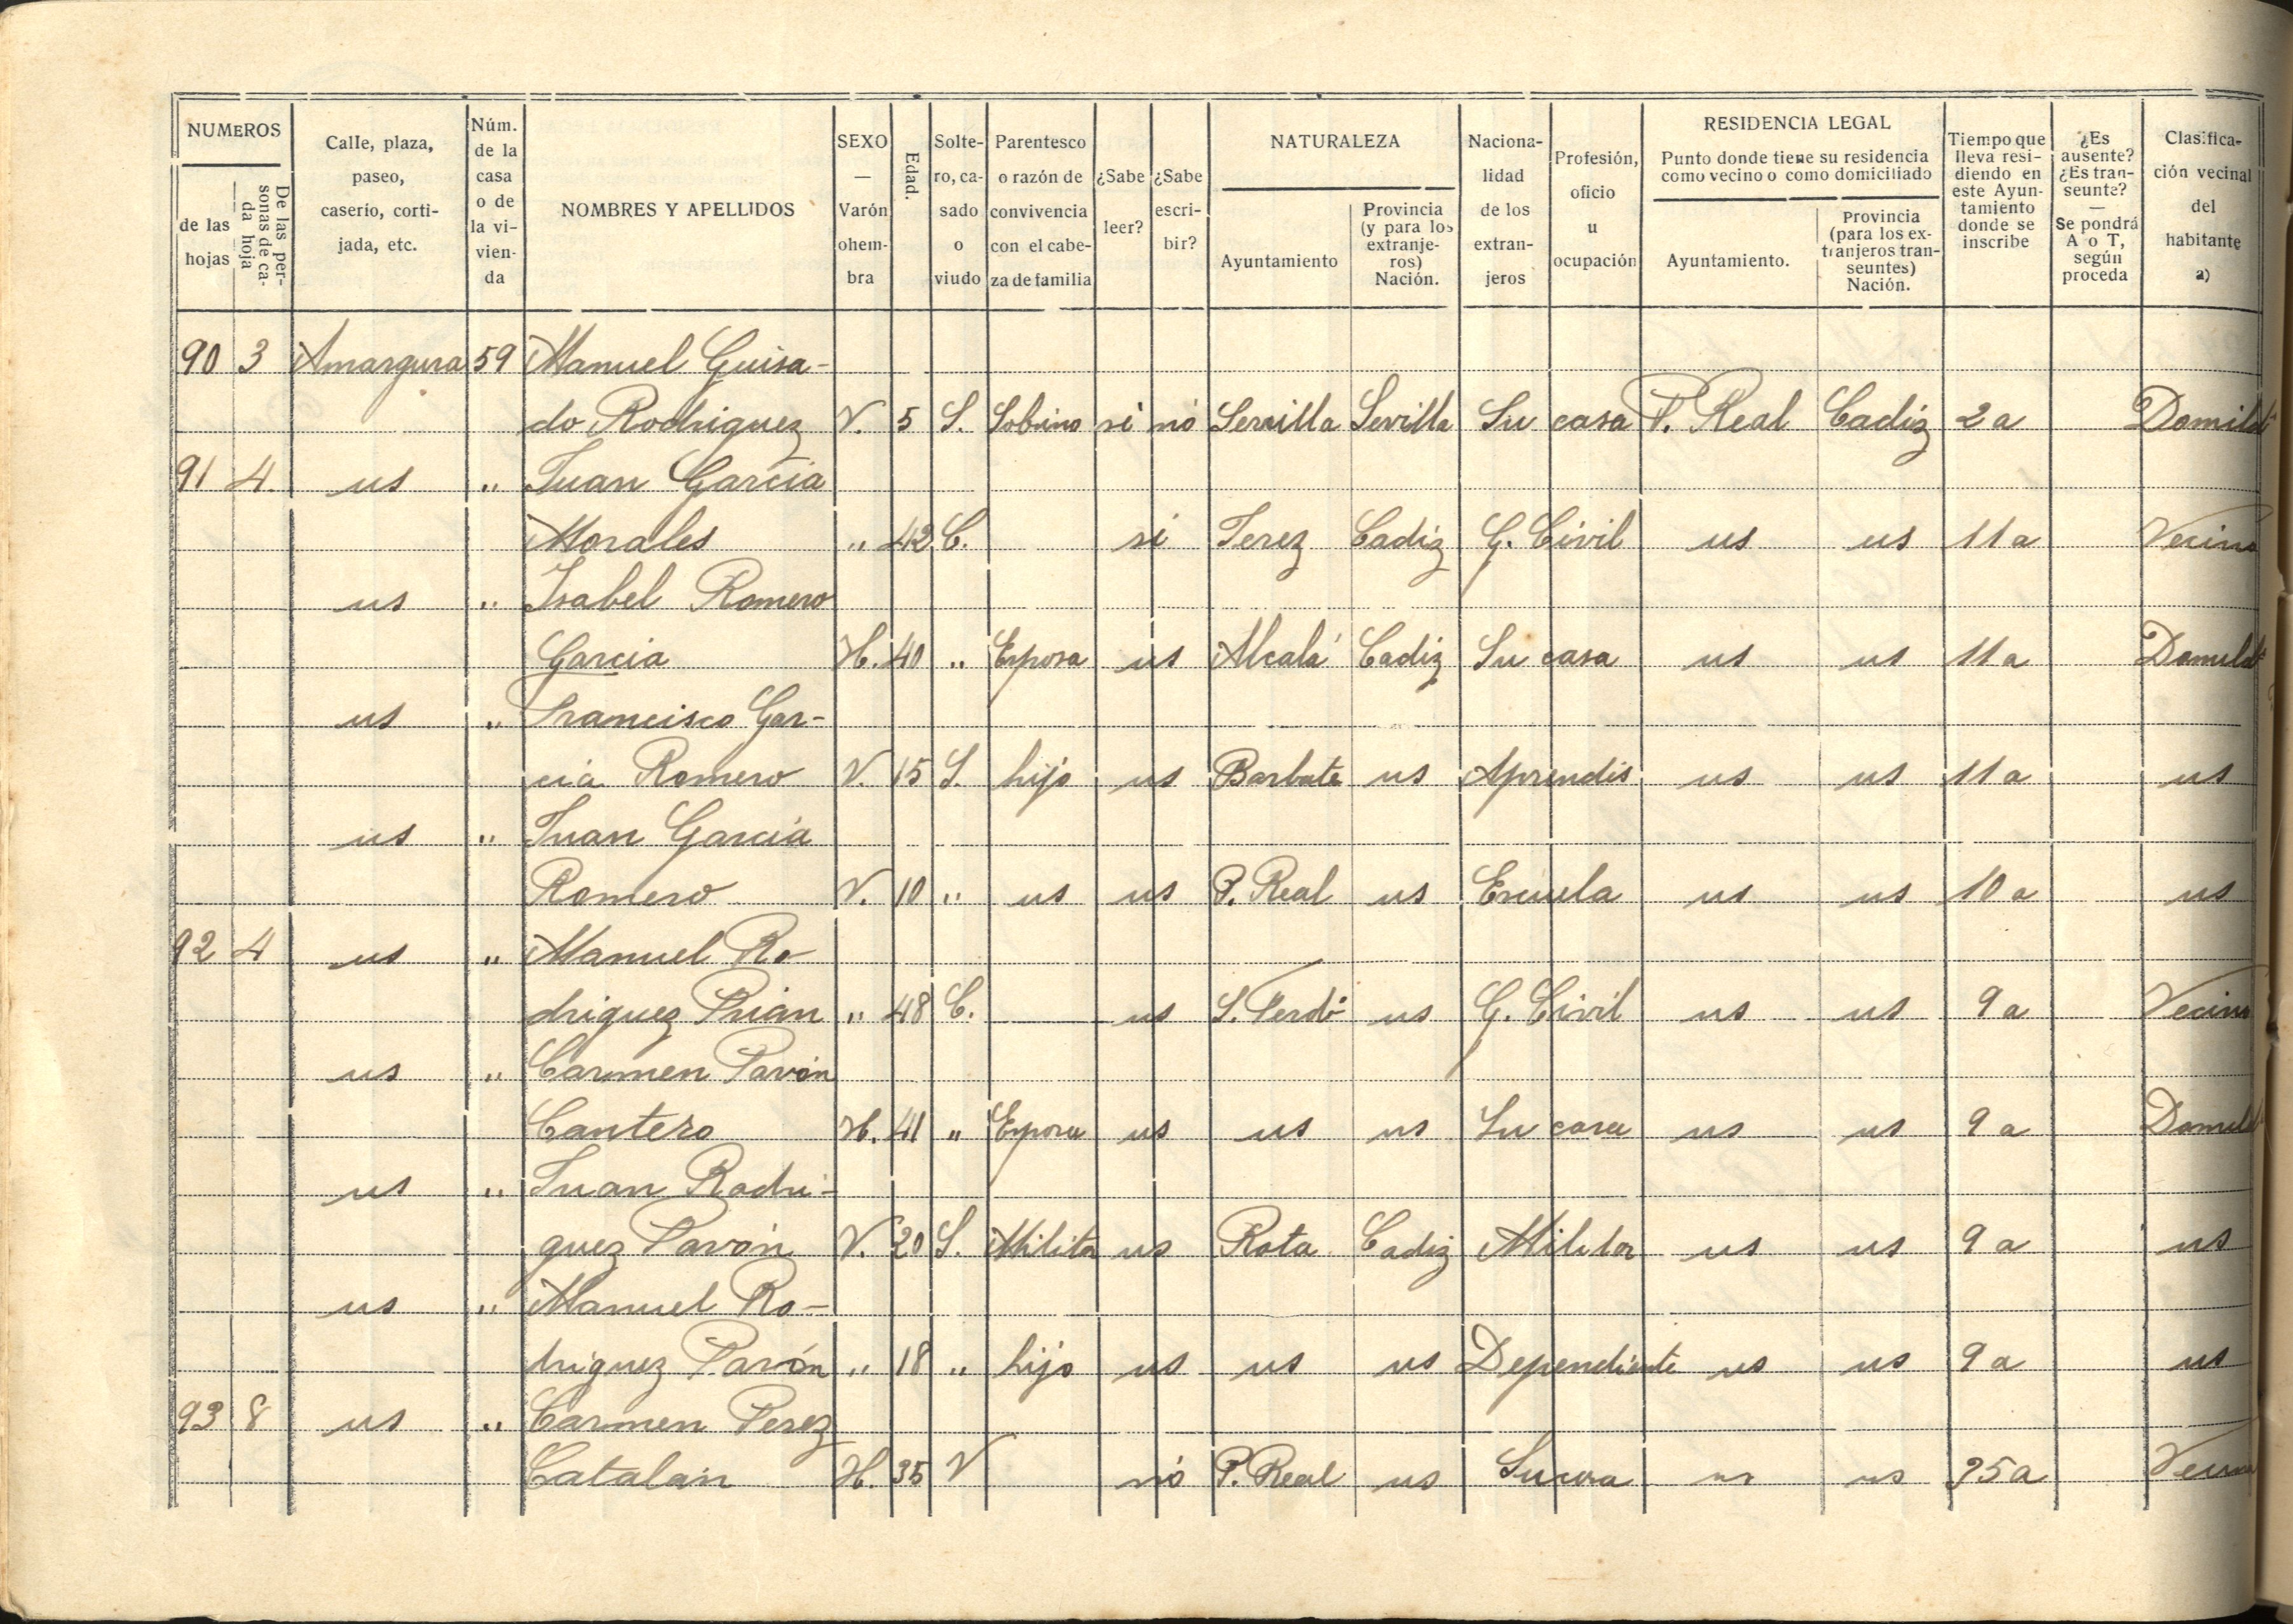 NUMEROS
de las hojas
De las personas de cada hoja
Calle, plaza, paseo, caserío, cortijada, etc.
Núm. de la casa o de la vivienda
NOMBRES Y APELLIDOS
SEXO — Varón o hembra
Edad.
Soltero, casado o viudo
Parentesco o razón de convivencia con el cabeza de familia
¿Sabe leer?
¿Sabe escribir?
NATURALEZA
Ayuntamiento
Provincia (y para los extranjeros) Nación.
Nacionalidad de los extranjeros
Profesión, oficio u ocupación
RESIDENCIA LEGAL
Punto donde tiene su residencia como vecino o como domiciliado
Ayuntamiento.
Provincia (para los extranjeros transeuntes) Nación.
Tiempo que lleva residiendo en este Ayuntamiento donde se inscribe
¿Es ausente? ¿Es transeunte? — Se pondrá A o T, según proceda
Clasificación vecinal del habitante a)
90 3 Amargura 59 Manuel Guisa-
do Rodriguez V. 5 S. Sobrino si no Sevilla Sevilla Su casa P. Real Cadiz 2 a
91 4 us " Juan Garcia
Morales " 42 C. si Jerez Cadiz G. Civil us us 11 a Vecino
us " Isabel Romero
Garcia H. 40 " Esposa us Alcalá Cadiz Su casa us us 11 a
us " Francisco Gar-
cia Romero V. 15 S. hijo us Barbate us Aprendis us us 11 a us
us " Juan Garcia
Romero V. 10 " us us P. Real us Escuela us us 10 a us
92 4 us " Manuel Ro-
driguez Prian " 48 C. — us S. Ferdo us G. Civil us us 9 a Vecino
us " Carmen Pavón
Cantero H. 41 " Esposa us us us Su casa us us 9 a
us " Juan Rodri-
guez Pavón V. 20 S. Militar us Rota Cadiz Militar us us 9 a us
us " Manuel Ro-
driguez Pavón " 18 " hijo us us us Dependiente us us 9 a us
93 8 us " Carmen Perez
Catalan H. 35 V no P. Real us Su casa us us 35 a